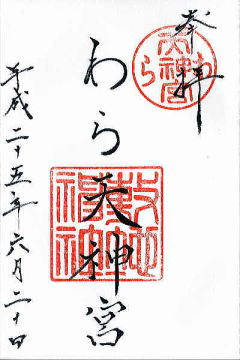 奉拝
わら天神宮
敷地神社
平成二十五年六月二十日